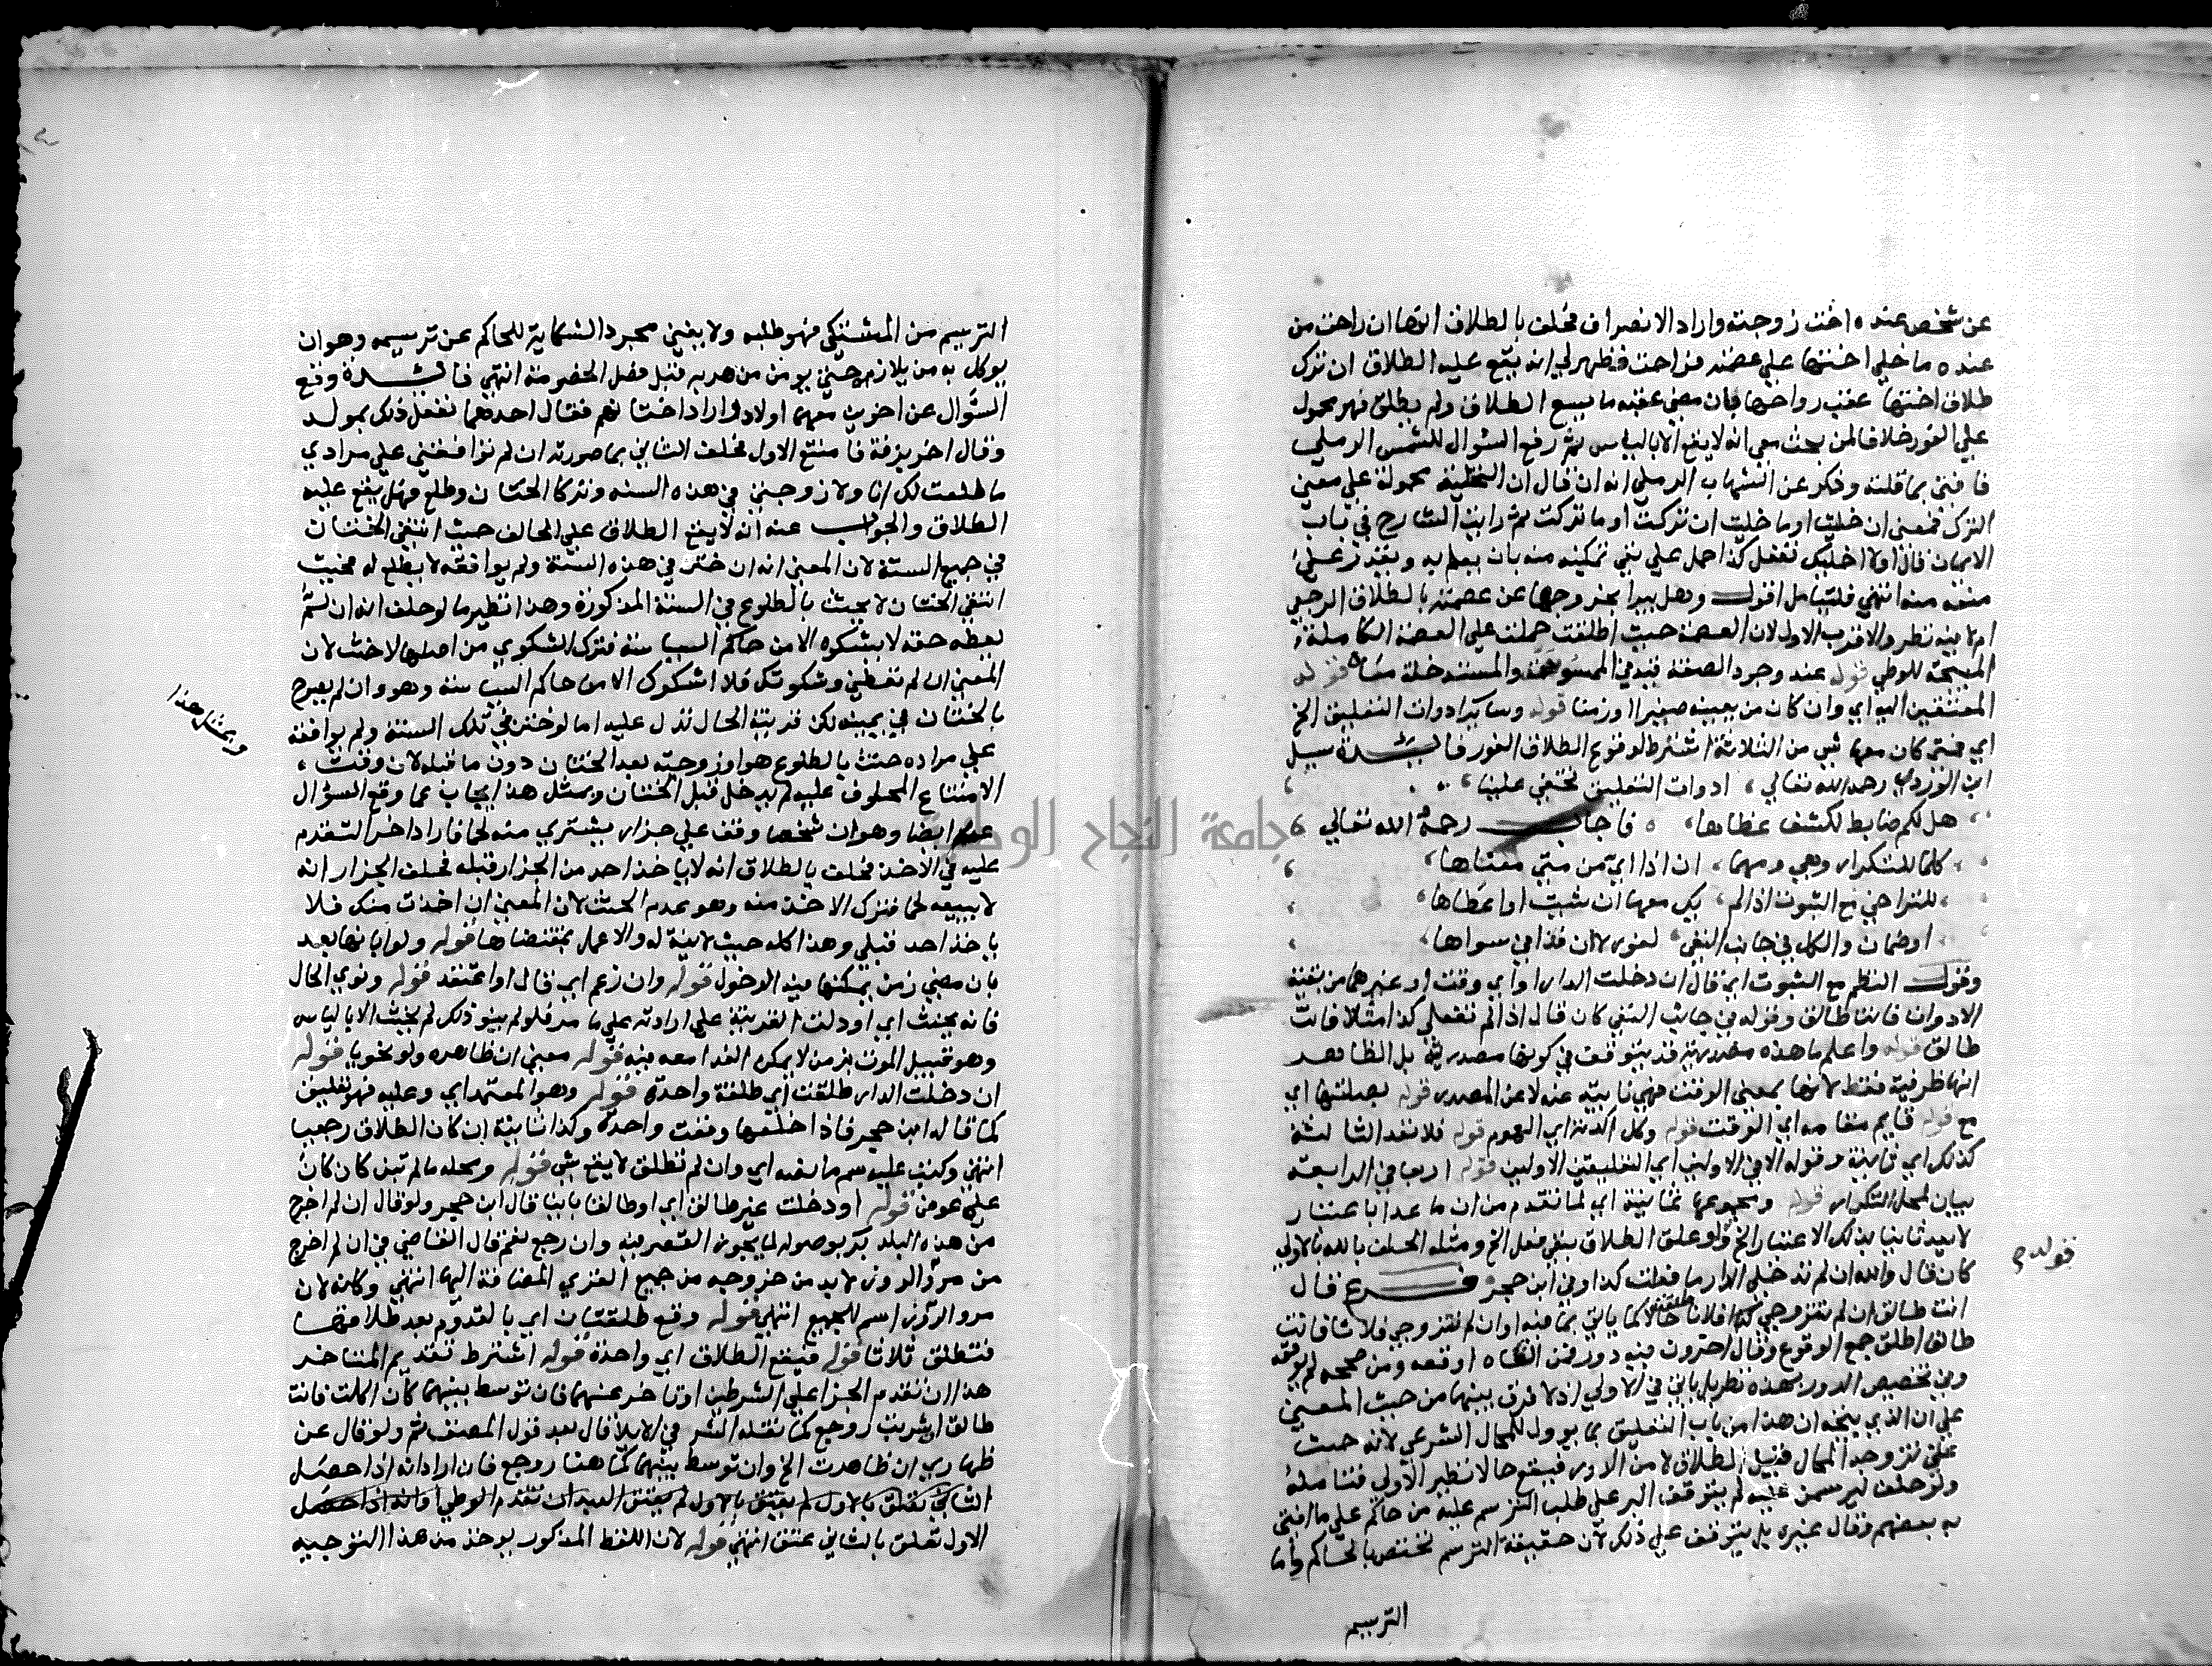 عن شخص عنده اخت زوجته واراد الانصراف فحلف بالطلاق انها ان راحت من
عنده ما خلي اختها علي عصمته فراحت فظهر لي انه يقع عليه الطلاق ان ترك
طلاق اختها عقب رواحها فان مضي عقبه ما يسع الطلاق ولم يطلق فهو محمول
علي الفور خلافا لمن بحث معي انه لا يقع الا بالياس ثم رفع السوال للشمس الرملي
فافتي بما قلته وذكر عن الشهاب الرملي انه ان قال ان التخلية محمولة علي معني
الترك فمعني ان خليت او ما خليت ان تركت او ما تركت ثم رايت الشارح في باب
الايمان قال اولا اخليك تفعل كذا حمل علي نفي تمكينه منه بان يعلم به ويقدر علي
منعه منه انتهي فليتامل اقول وهل يبرا بخروجها عن عصمته بالطلاق الرجعي
ام لا فيه نظر والاقرب الاول لان العصمة حيث اطلقت حملت علي العصمة الكاملة
المبيحة للوطي قوله عند وجود الصفة قوله
المعتقين اليه اي وان كان من يعينه صغيرا وزمنا قوله وساير ادوات التعليق الخ
اي فمتي كان معها شي من الثلاثة اشترط لوقوع الطلاق الفور فائدة سيل
ابن الوردي رحمه الله تعالي ادوات التعليق تخفي علينا
هل لكم ضابط لكشف غطاها فاجاب رحمه الله تعالي
كلما للتكرار وهي ومهما ان اذا اي من متي معناها
للتراخي مع الثبوت اذا لم يك معها ان شيت او اعطاها
او ضمان والكل في جانب النفي لفور لا ان فذا في سواها
وقول النظم مع الثبوت اي قال ان دخلت الدار او اي وقت او غيرهما من بقية
الادوات فانت طالق وقوله في جانب النفي كان قال اذا لم تفعلي كذا مثلا فانت
طالق قوله واعلم ما هذه مصدرية قد يتوقف في كونها مصدرية بل الظاهر
انها ظرفية فقط لانها بمعني الوقت فهي نايبة عنه لا عن المصدر قوله بصلتها اي
مع قوله قايم مقامه اي الوقت قوله وكل الدنه اي اليوم قوله فلا تعد الثالثة
كذلك اي ثانية وقوله الا في الاوليين اي التعليقين الاولين قوله اربعا في الرابعة
بيان لمحل التكرار قوله ومجموعها ثمانية اي لما تقدم من ان ما عد باعتبار
لا يعد ثانيا بذلك الاعتبار الخ ولو علق الطلاق بنفي فعل الخ ومثله الحلف بالله بالاولي
قوله
كان قال والله ان لم تدخلي الدار ما فعلت كذا وفي ابن حجر فرع قال
انت طالق ان لم تتزوجي فلانا طلقت حالا كما ياتي بما فيه او ان لم تتزوجي فلانا فانت
طالق اطلق جمع الوقوع وقال اخرون فيه دور فمن الغاه اوقعه ومن صححه لم يوقعه
وفي تخصيص الدور بهذه نظر بل ياتي في الاولي اذ لا فرق بينهما من حيث المعني
علي ان الذي يتجه ان هذا من باب التعليق بما يوول للمحال الشرعي لانه حث
علي تزوجها المحال قبيل الطلاق لا من الدور فيقع حالا نظير الاولي فتامله
ولو حلف ليرسمن عليه لم يتوقف البر علي طلب الترسم عليه من حاكم علي ما افتي
به بعضهم وقال غيره بل يتوقف علي ذلك لان حقيقة الترسم تختص بالحاكم واما
الترسيم
الترسيم من المشتكي فهو طلبه ولا يغني مجرد الشكاية للحاكم عن ترسيمه وهو ان
يوكل به من يلازمه حتي يومن من هربه قبل فصل الخصومة انتهي فائدة وقع
السوال عن اخوين معهما اولاد وارادا ختانهم فقال احدهما نفعل ذلك بمولد
وقال اخر بزفة فامتنع الاول فحلف الثاني بما صورته ان لم توافقني علي مرادي
ما طلعت لك انا ولا زوجتي في هذه السنه وتركا الختان وطلع فهل يقع عليه
الطلاق والجواب عنه انه لا يقع الطلاق علي الحالف حيث انتفي الختان
في جميع السنة لان المعني انه ان ختن في هذه السنة ولم يوافقه لا يطلع له فحيث
انتفي الختان لا يحنث بالطلوع في السنة المذكورة وهذا نظير ما لو حلف انه ان لم
يعطه حقه لا يشكوه الا من حاكم السياسة فترك الشكوي من اصلها لا حنث لان
المعني ان لم تعطني وشكوتك فلا اشكوك الا من حاكم السياسة وهو وان لم يصرح
بالختان في يمينه لكن قرينة الحال تدل عليه اما لو ختن في تلك السنة ولم يوافقه
علي مراده حنث بالطلوع هو او زوجته بعد الختان دون ما قبله لان وقت
الامتناع المحلوف عليه لم يدخل قبل الختان وبمثل هذا يجاب عما وقع السوال
وبمثل هذا
عنه ايضا وهو ان شخصا وقف علي جزار يشتري منه لحما فاراد اخر التقدم
عليه في الاخذ فحلف بالطلاق انه لا ياخذ احد من الجزار قبله فحلف الجزار انه
لا يبيعه لحما فترك الاخذ منه وهو عدم الحنث لان المعني ان اخذت منك فلا
ياخذ احد قبلي وهذا كله حيث لا نية له والا عمل بمقتضاها قوله ولو ايانها بعد
بان مضي زمن يمكنها فيه الدخول قوله وان زعم اي قال او اعتقد قوله ونوي الحال
فانه يحنث اي او دلت القرينة علي ارادته علي ما مر فلو لم ينو ذلك لم يحنث الا بالياس
وهو قبيل الموت بزمن لا يمكن الغدا معه فيه قوله معني ان ظاهره ولو نحويا قوله
ان دخلت الدار طلقت اي طلقة واحدة قوله وهو المعتمد اي وعليه فهو تعليق
كما قاله ابن حجر فاذا وقعت واحدة وكذا ثانية ان كان الطلاق رجعيا
انتهي وكتب عليه سم ما نصه اي وان لم تطلق لا يقع شي قوله ومحله ما لم تبن كان كان
علي عوض قوله او دخلت غير طالق اي او طالقا باينا قال ابن حجر ولو قال ان لم اخرج
من هذه البلد بر بوصوله لما يجوز القصر فيه وان رجع نعم قال القاضي في ان لم اخرج
من مرو الروذ لا بد من خروجه من جميع القري المضافة اليها انتهي وكانه لان
مرو الروذ اسم للجميع انتهي قوله وقع طلقتان اي بالقدوم بعد طلاقها
فتطلق ثلاثا قوله فيقع الطلاق اي واحدة قوله اشترط تقديم المتاخر
هذا ان تقدم الجزا علي الشرطين او تاخر عنهما فان توسط بينهما كان اكلت فانت
طالق ان شربت روجع كما نقله الشر في الايلا قال بعد قول المصنف ثم ولو قال عن
ظهاري ان ظاهرت الخ وان توسط بينهما كما هنا روجع فان اراد انه اذا حصل
الثاني تعلق بالاول لم يعتق العبد ان تقدم الوطي او انه اذا حصل
الاول تعلق بالثاني عتق انتهي قوله لان اللفظ المذكور يوخذ من هذا التوجيه